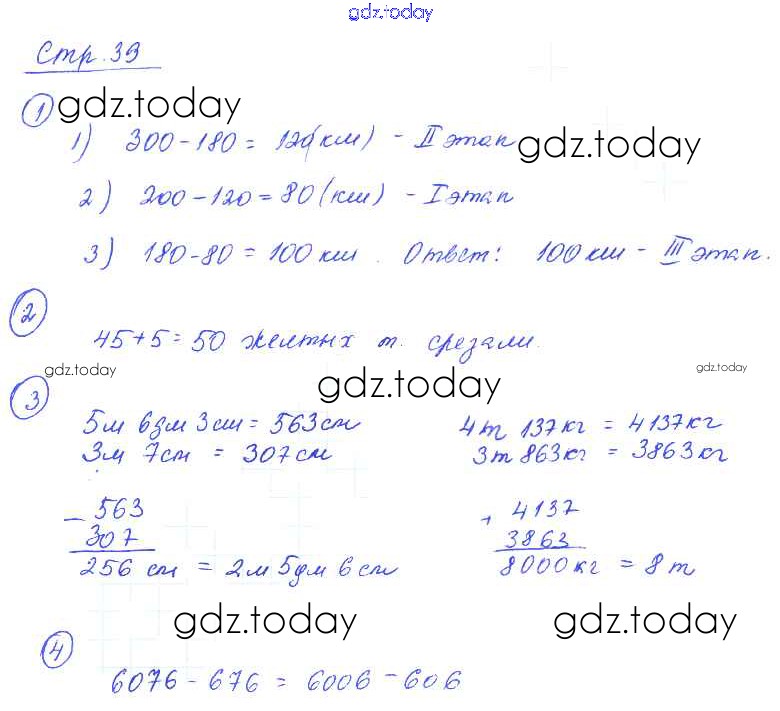 gdz.today
Стр. 39
① gdz.today
1) 300-180 = 120(км) - II этап
gdz.today
2) 200-120=80(км) - I этап
3) 180-80 = 100 км. Ответ: 100 км - III этап.
②
45+5=50 желтых т. срезали.
gdz.today gdz.today gdz.today
③
5м 6дм 3см = 563см 4т 137кг = 4137кг
3м 7см = 307см 3т 863кг = 3863кг
- 563 + 4137
307 3863
256 см = 2м 5дм 6см 8000кг = 8т
gdz.today gdz.today
④
6076 - 676 = 6006 - 606